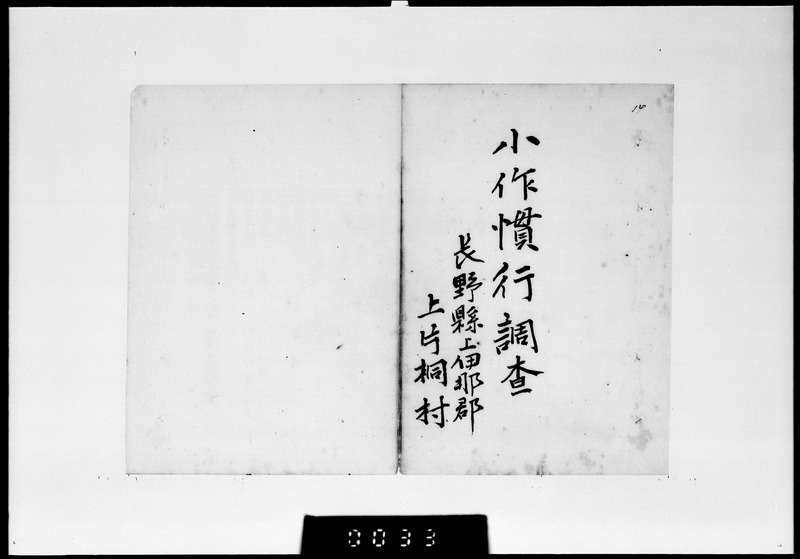 14
小作慣行調査
長野縣上伊那郡
上片桐村
0033